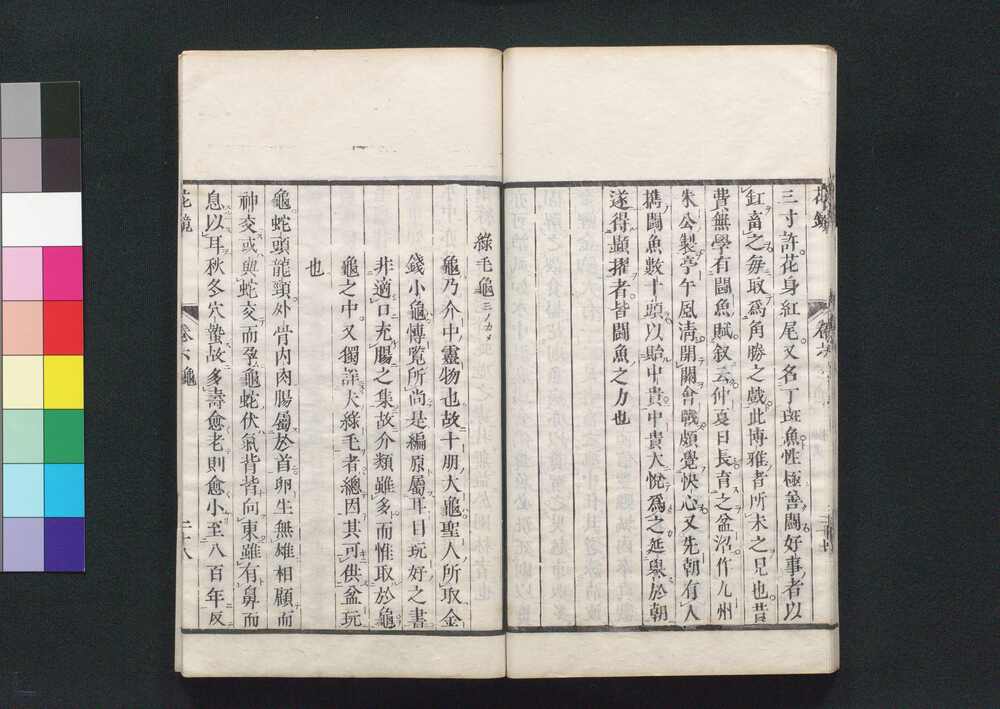 三寸許花身紅尾又名丁斑魚性極善鬪好事者以
缸畜之每取爲角勝之戲此博雅者所未之見也昔
費無學有鬪魚賦叙云仲夏日長育之盆沼作九州
朱公製亭午風淸開關會戰頗覺快心又先朝有人
携鬪魚數十頭以貽中貴中貴大悅爲之延譽於朝
遂得顯擢者皆鬪魚之力也
綠毛龜ミノカメ
龜乃介中靈物也故十朋大龜聖人所取金
錢小龜博覧所尚是編原屬耳目玩好之書
非適口充腸之集故介類雖多而惟取於龜
龜之中又獨詳夫綠毛者總因其可供盆玩
也
龜蛇頭龍頸外骨内肉腸屬於首卵生無雄相顧而
神交或與蛇交而孕龜蛇伏氣背皆向東雖有鼻而
息以耳秋冬穴蟄故多壽愈老則愈小至八百年反
花鏡
卷六 龜
二十八